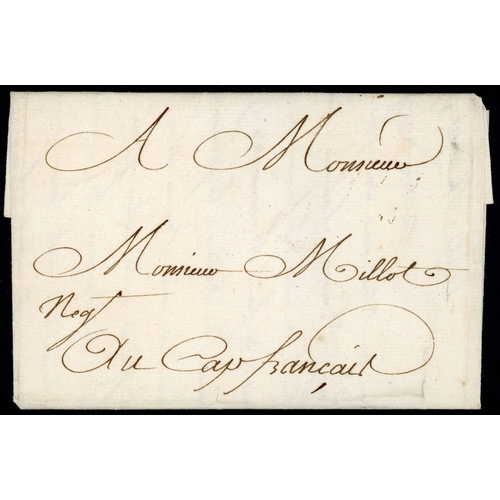 A Monsieur
Monsieur Millot
Negt
Au Cap français